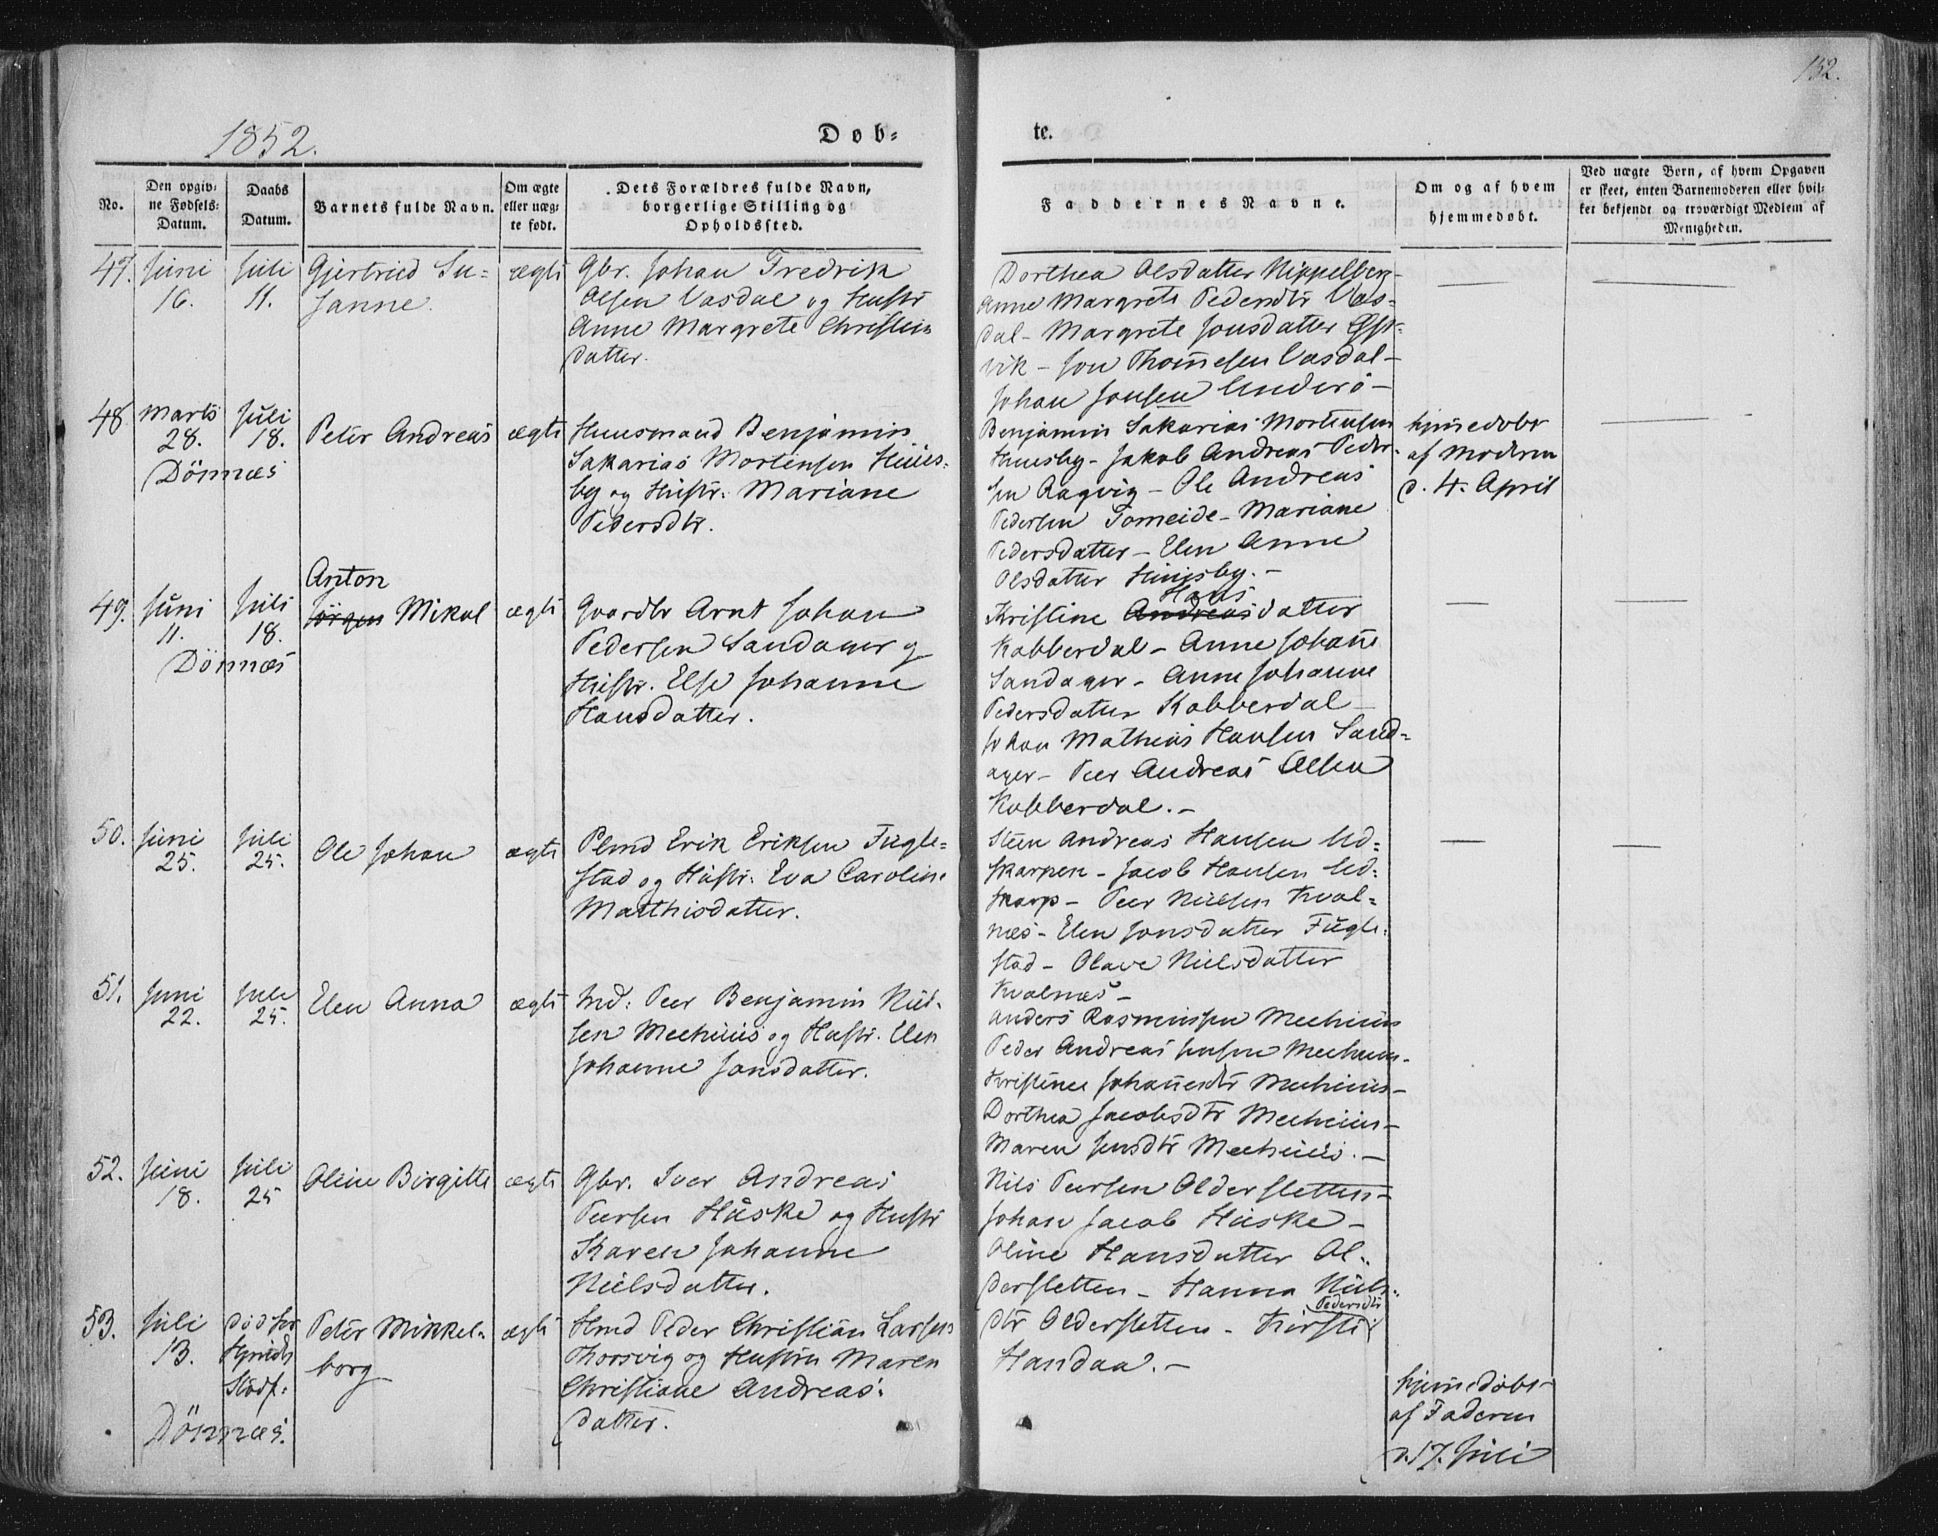 152.
1852.
Døb-
te.
No.
Den opgiv-
ne Fødsels-
Datum.
Daabs
Datum.
Barnets fulde Navn.
Om ægte
eller uæg-
te født.
Dets Forældres fulde Navn,
borgerlige Stilling og
Opholdssted.
Faddernes Navne.
Om og af hvem
hjemmedøbt.
Ved uægte Børn, af hvem Opgaven
er skeet, enten Barnemoderen eller hvil-
ket bekjendt og troværdigt Medlem af
Menigheden.
47.
Juni
16.
Juli
11.
Gjertrud Su-
sanne.
ægte
Gbr. Johan Fredrik
Olsen Vasdal og Hustr
Anne Margrete Christens
datter.
Dorthea Olsdatter Nippelberg-
Anne Margrete Pedersdtr Vas-
dal - Margrete Jonsdatter
vik - Jon Thomesen Vasdal -
Johan Jonsen Anderö -
48
Marts
28.
Juli
18.
Dönnæs
Peter Andreas
ægte
Huusmand Benjamin
Sakarias Mortensen Huus-
by og Hustr. Mariane
Pedersdtr.
Benjamin Sakarias Mortensen
Huusby - Jakob Andreas Peder-
sen Ragvig - Ole Andreas
Pedersen Tomeide - Mariane
Pedersdatter - Elen Anne
Olsdatter Huusby. -
hjemedøbt
af Moderen
d. 4. April
49.
Juni
11.
Juli
18.
Dönnæs
Anton
Jörgen Mikal
ægte
Gaardbr Arnt Johan
Pedersen Sandager og
Hustr. Else Johanne
Hansdatter.
Hans
Kristine Andreasdatter
Kobberdal - Anne Johane
Sandager - Anne Johanne
Pedersdatter Kobberdal -
Johan Mathias Hansen Sand-
ager - Peer Andreas Olsen
Kobberdal. -
50.
Juni
25.
Juli
25.
Ole Johan
ægte
Plmd Erik Eriksen Fugle-
stad og Hustr. Eva Caroline
Matthisdatter.
Steen Andreas Hansen Ud-
skarpen - Jacob Hansen Ud-
skarp - Peer Nielsen Kval-
næs - Elen Jonsdatter Fugle-
stad - Olave Nielsdatter
Kvalnæs -
51.
Juni
22.
Juli
25.
Elen Anna
ægte
Ind: Peer Benjamin Niel-
sen Meehuus og Hustr. Elen
Johanne Jonsdatter.
Anders Rasmussen Meehuus
Peder Andreas Jensen Meehuus-
Kristine Johannesdtr Meehuus -
Dorthea Jacobsdtr Meehuus -
Maren Jensdtr Meehuus. -
52.
Juni
18.
Juli
25
Oline Birgitte
ægte
Gbr. Iver Andreas
Peersen Huske og Hustr
Karen Johanne
Nielsdatter.
Nils Peersen Oldersletten -
Johan Jacob Huske -
Oline Hansdatter Ol-
dersletten - Hanna Niels-
Pedersdtr
dtr Oldersletten - Kirsti
Handaa. -
53.
Juli
13.
Död før
Stadf:
Dönnæs.
Peter Mikkel-
borg
ægte
Hmd Peder Christian Larsen
Thorsvig og Hustru Maren
Christiane Andreas-
datter.
hjemedøbt
af Faderen
d. 17. Juli